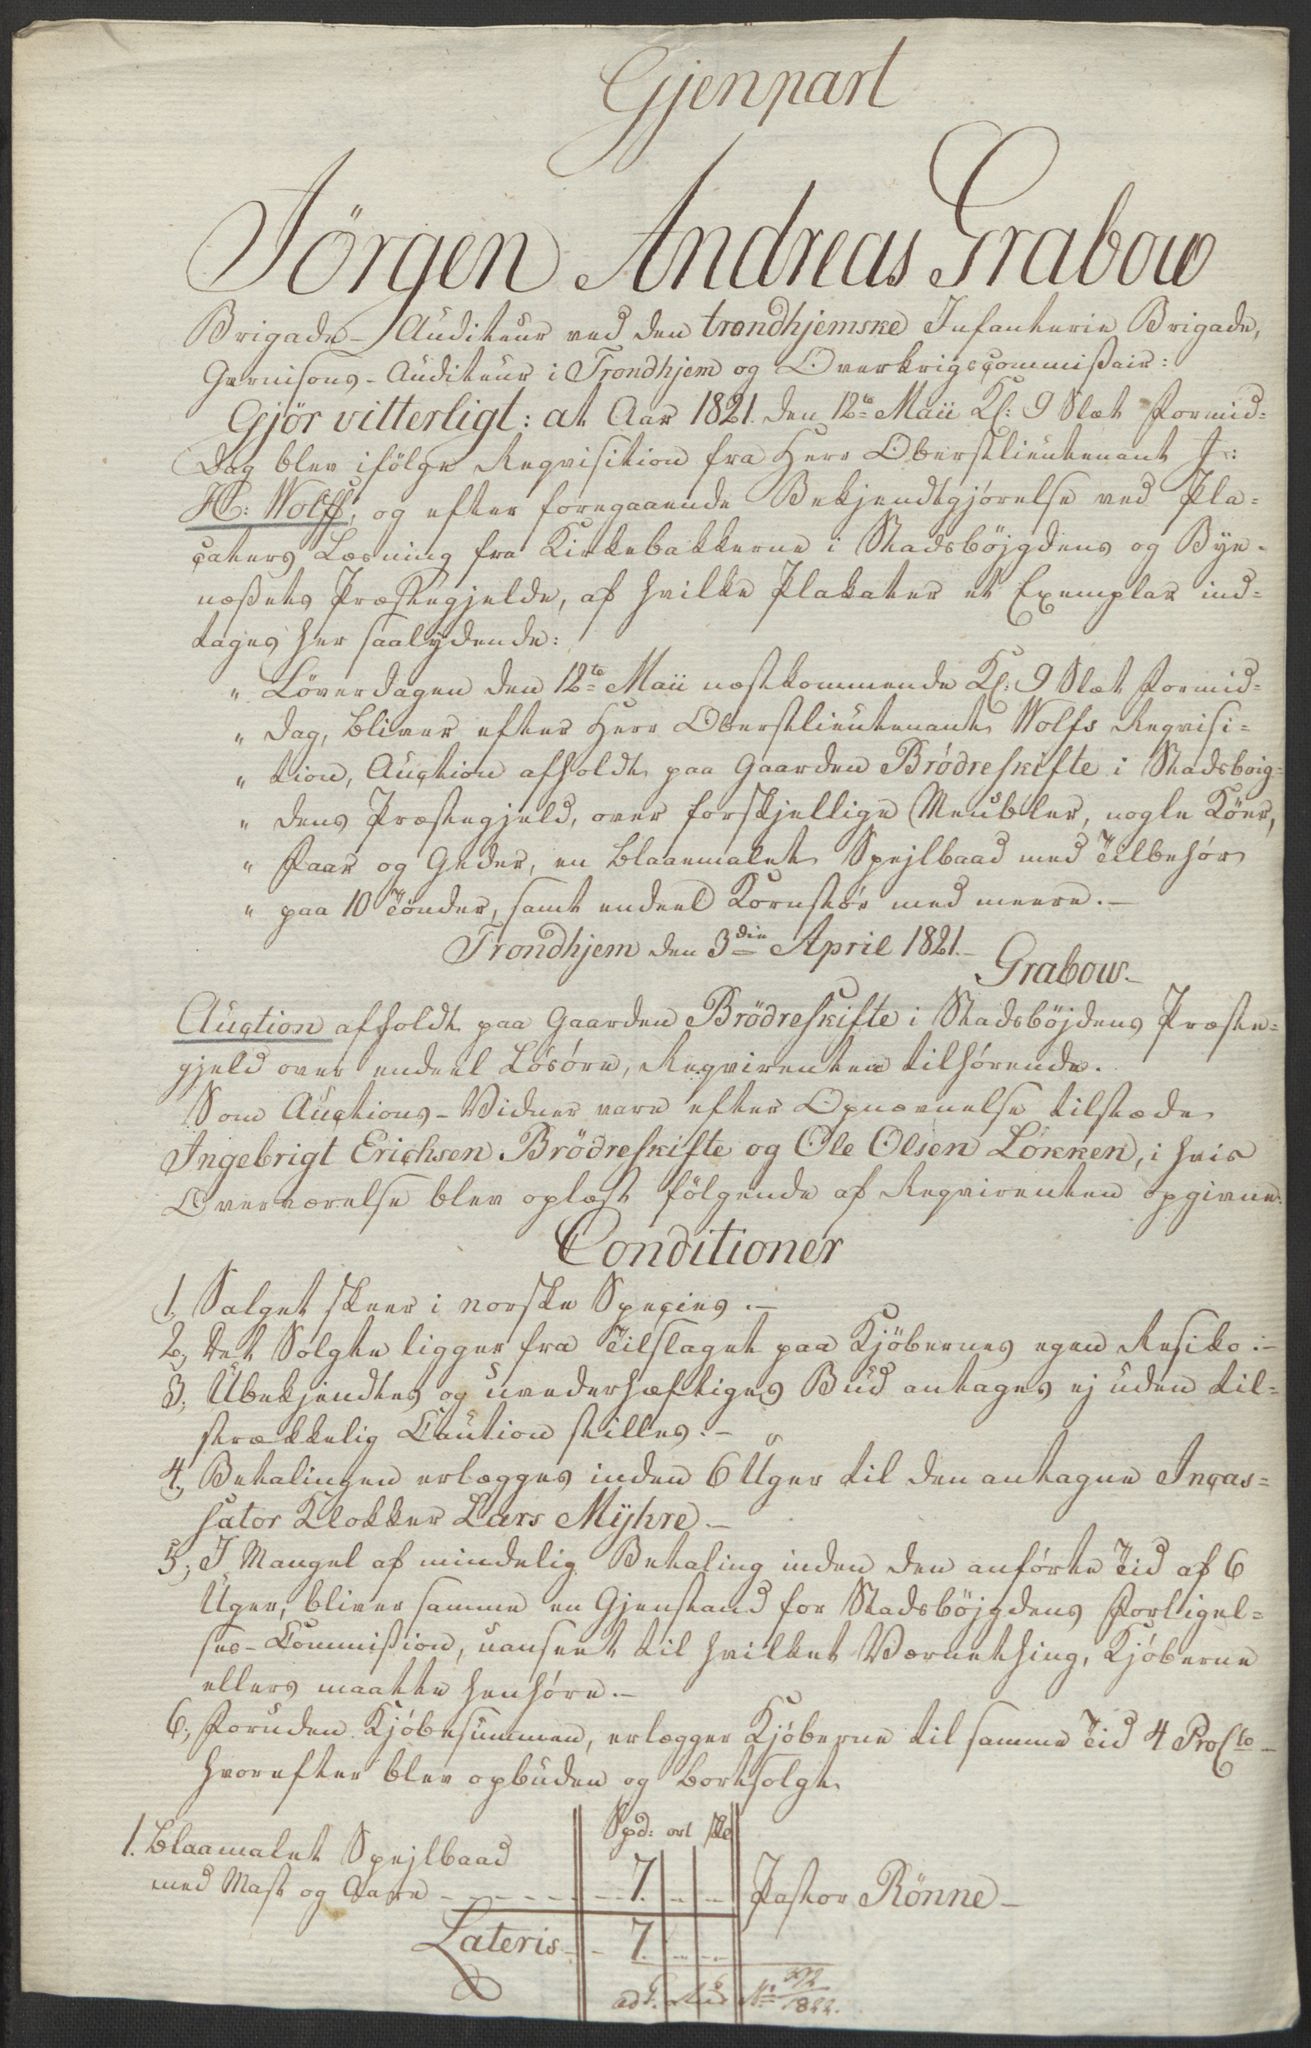 Gjenpart
Jörgen Andreas Grabow
Brigade-Auditeur ved den trondhjemske Infanterie Brigade,
Garnisons-Auditeur i Trondhjem og Overkrigscommissair:
Gjör vitterligt: at Aar 1821 den 12te Maii Kl: 9 Slæt Formid-
dag blev ifölge Reqvisition fra Herr Oberstlieutenant J:
H: Wolff, og efter foregaaende Bekjendtgjörelse ved Pla-
caters Læsning fra Kirkebakkerne i Stadsböjgdens og Bye-
næssets Præstegjelde, af hvilke Plakater et Exemplar ind-
tages her saalydende:
" Löverdagen den 12te Maii næstkommende Kl: 9 Slæt Formid-
" dag, bliver efter Herr Oberstlieutenant Wolfs Reqvisi-
" tion, Auction afholdt paa Gaarden Brödreskifte i Stadsboig-
" dens Præstegjeld, over forskjellige Meubler, nogle Köer,
" Faar og Geder, en blaaemalet Spejlbaad med Tilbehör
" paa 10 Tönder, samt endeel Kornstör med meere.—
Trondhjem den 3die April 1821.—
Grabow—
Auction afholdt paa Gaarden Brödreskifte i Stadsböjdens Præste-
gjeld over endeel Lösöre, Reqvirenten tilhörende.
Som Auctions-Vidner vare efter Opnævnelse tilstæde
Ingebrigt Erichsen Brödreskifte og Ole Olsen Lökken, i hvis
Overværelse blev oplæst fölgende af Reqvirenten opgivne
Conditioner
1, Salget skeer i norske Species.—
2, Det Solgte ligger fra Tilslaget paa Kjöbernes egen Resiko.—
3, Ubekjendtes og uvederhæftiges Bud antages ej uden til-
strækkelig Caution stilles.—
4, Betalingen erlægges inden 6 Uger til den antagne Incas-
sator Klokker Lars Myhre—
5, I Mangel af mindelig Betaling inden den anförte Tid af 6
Uger, bliver samme en Gjenstand for Stadsböjgdens Forligel-
ses-Commission, uanseet til hvilket Værnething, Kjöberne
ellers maatte henhöre.—
6, Foruden Kjöbesummen, erlægger Kjöberne til samme Tid 4 ProCto—
hvorefter blev opbuden og bortsolgt
Spd: ort sk
1. blaamalet Spejlbaad
med Mast og Aare - - - - - 7. .. .. Pastor Rönne—
Lateris - 7. .. ..
1822.